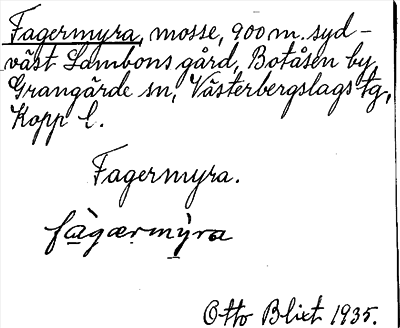 Fagermyra, mosse, 900 m. syd-
väst Lambons gård, Botåsen by,
Grangärde sn, Västerbergslags tg,
Kopp l.
Fagermyra.
fàgærmỳra
Otto Blixt 1935.